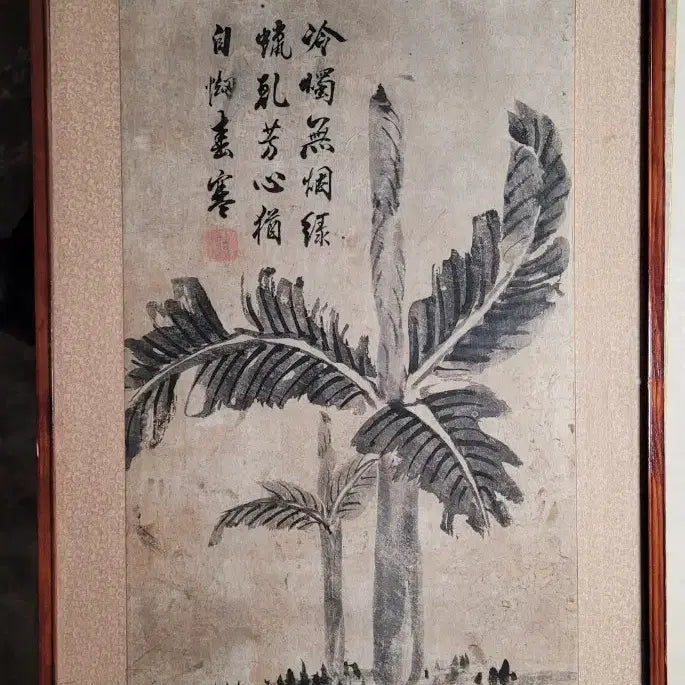 冷燭無烟緑
蠟乾芳心猶
自怯春寒